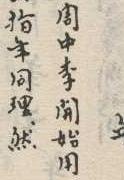 周中季開始用
指年同理、然